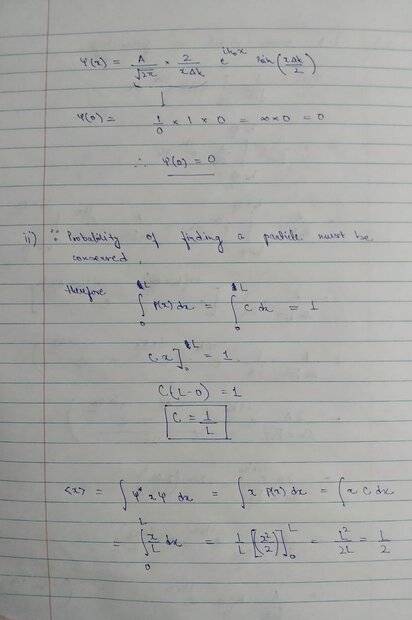 ψ(x) = A/√2π × 2/xΔk e^{ik₀x} sin(xΔk/2)
ψ(0) = 1/0 × 1 × 0 = ∞×0 = 0
∴ ψ(0) = 0
ii) ∵ Probability of finding a particle must be
conserved.
therefore ∫₀^L P(x) dx = ∫₀^L C dx = 1
C·x]₀^L = 1
C(L-0) = 1
C = 1/L
<x> = ∫ψ* x ψ dx = ∫ x P(x) dx = ∫ x C dx
= ∫₀^L x/L dx = 1/L [x²/2]₀^L = L²/2L = L/2